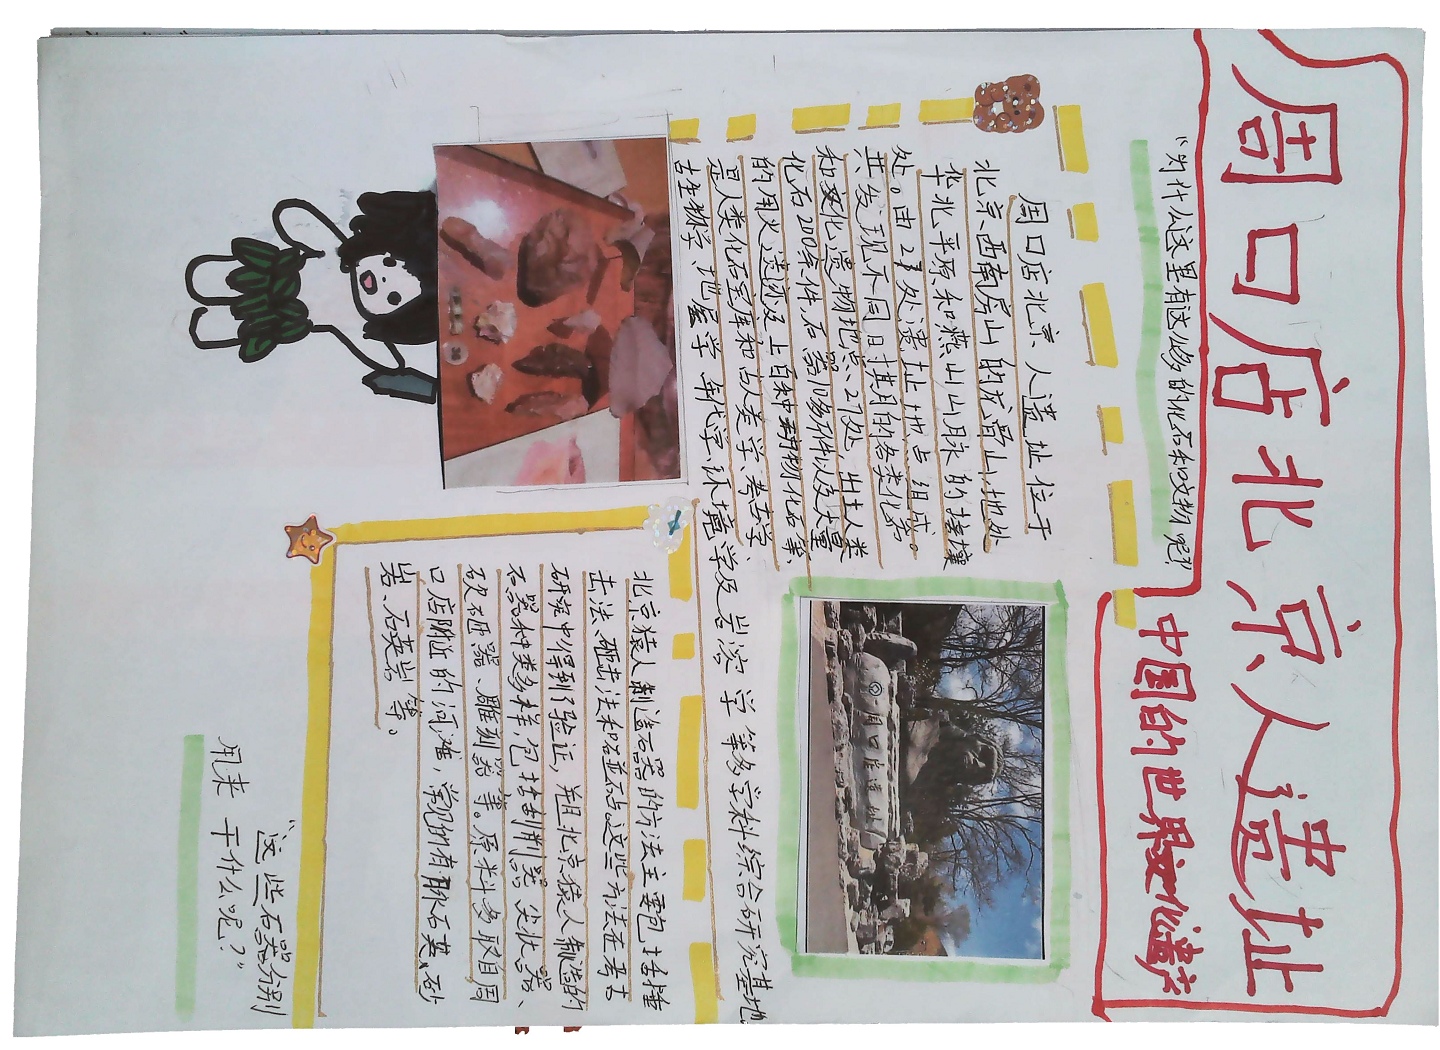 周口店北京人遗址
中国的世界文化遗产
“为什么这里有这么多的化石和文物呢?”
周口店北京人遗址位于
北京西南房山的龙骨山,地处
华北平原和燕山山脉的接壤
处。由27处遗址地点组成。
共发现不同时期的各类化石
和文化遗物地点27处,出土人类
化石200余件,石器10多万件以及大量
的用火遗迹及上百种动物化石等、
是人类化石宝库和古人类学、考古学、
古生物学、地层学、年代学、环境学及岩溶学等多学科综合研究基地。
周口店遗址
北京猿人制造石器的方法主要包括捶
击法、砸击法和碰砧。这些方法在考古
研究中得到了验证,并且北京猿人制造的
石器种类多样,包括刮削器、尖状器、
砍砸器、雕刻器等。原料多取自周
口店附近的河滩,常见的有脉石英、砂
岩、石英岩等。
“这些石器分别
用来干什么呢?”